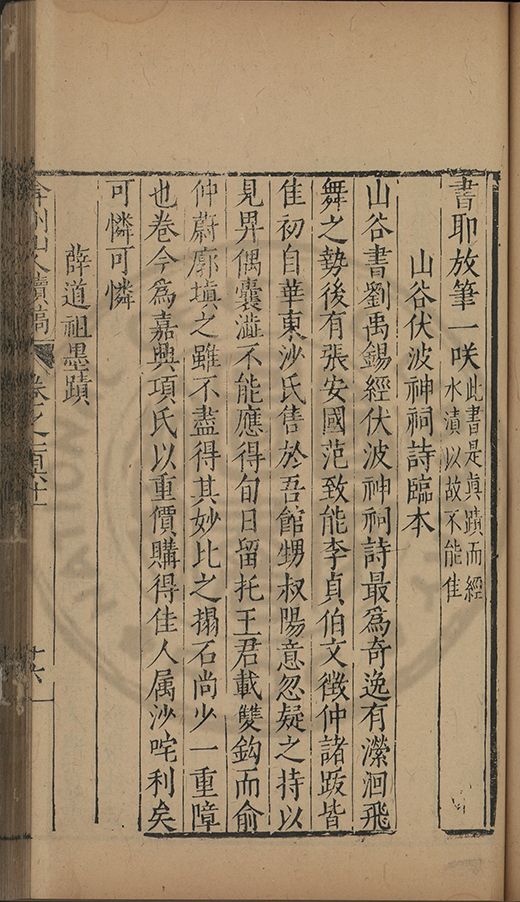 書耶放筆一咲此書是眞蹟而經水漬以故不能佳
山谷伏波神祠詩臨本
山谷書劉禹錫經伏波神祠詩最爲奇逸有瀠洄飛
舞之勢後有張安國范致能李貞伯文徵仲諸跋皆
佳初自華東沙氏售於吾館甥叔陽意忽疑之持以
見畀偶囊澁不能應得旬日留托王君載雙鈎而俞
仲蔚廓塡之雖不盡得其妙比之搨石尚少一重障
也卷今爲嘉興項氏以重價購得佳人属沙咤利矣
可憐可憐
薛道祖墨蹟
州山人續稿 卷之一百六十
十六